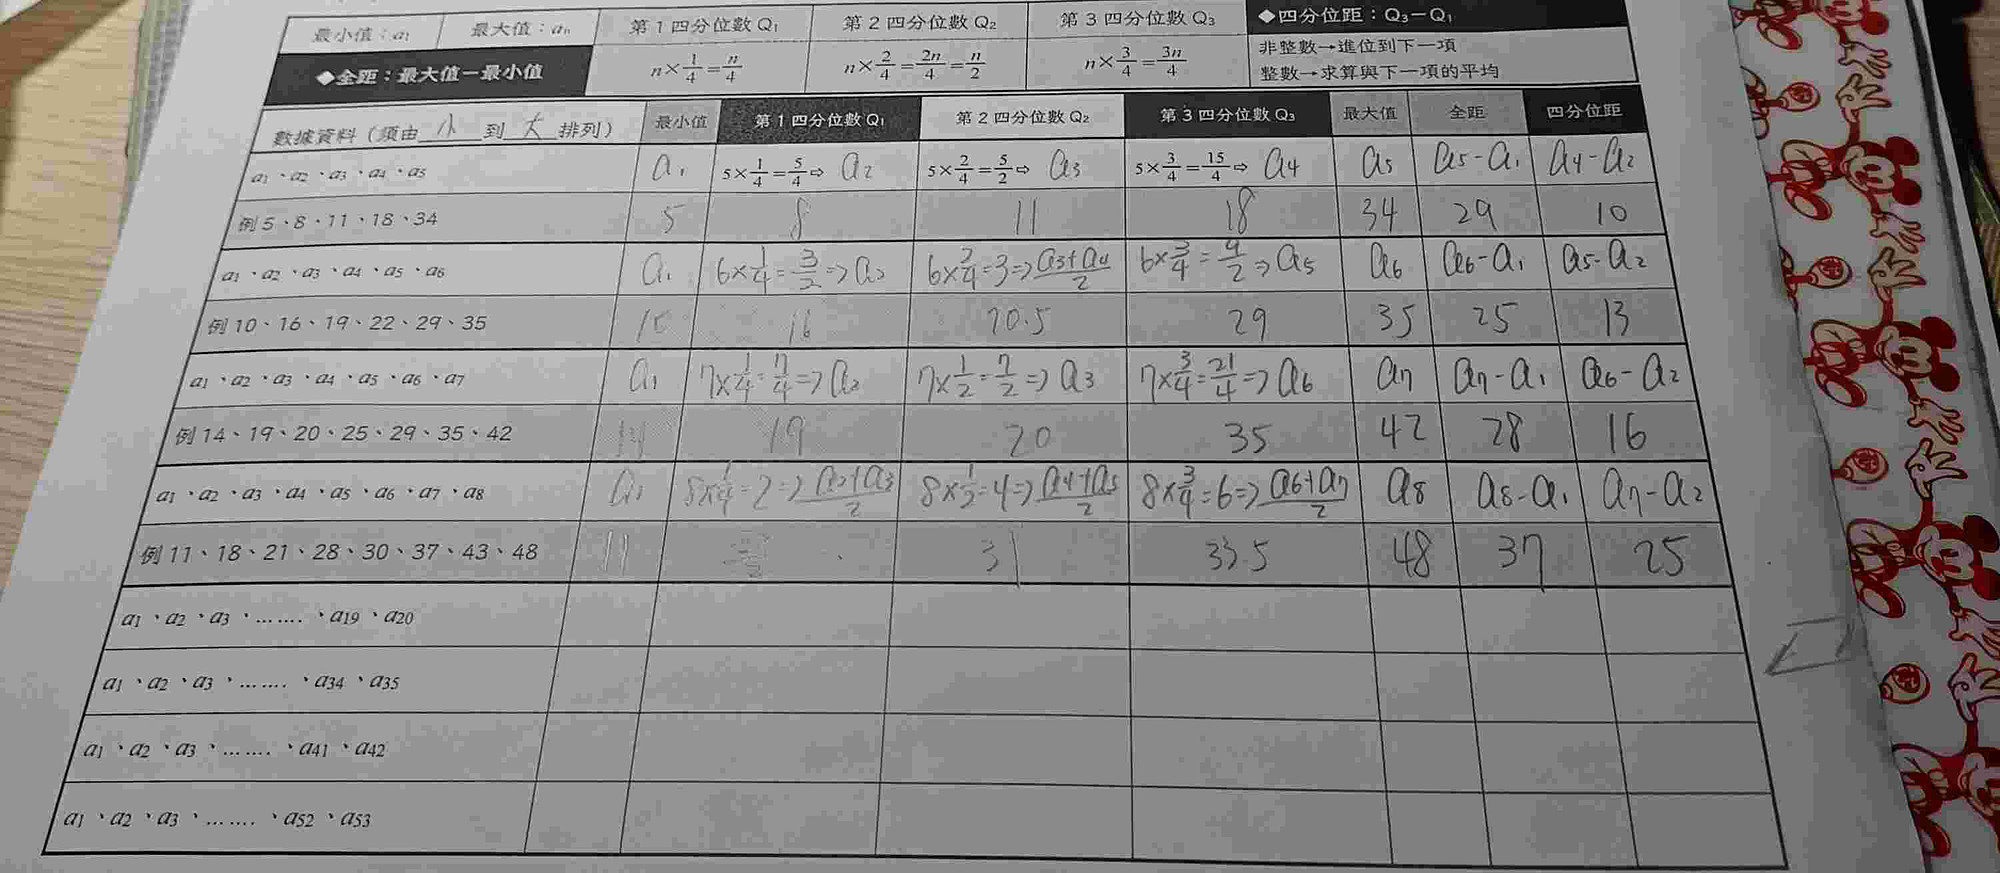 最小值：a₁ 最大值：aₙ 第 1 四分位數 Q₁ 第 2 四分位數 Q₂ 第 3 四分位數 Q₃ ◆四分位距：Q₃－Q₁
◆全距：最大值－最小值 n×1/4=n/4 n×2/4=2n/4=n/2 n×3/4=3n/4 非整數→進位到下一項
整數→求算與下一項的平均
數據資料（須由 小 到 大 排列） 最小值 第 1 四分位數 Q₁ 第 2 四分位數 Q₂ 第 3 四分位數 Q₃ 最大值 全距 四分位距
a₁、a₂、a₃、a₄、a₅ a₁ 5×1/4=5/4⇨ a₂ 5×2/4=5/2⇨ a₃ 5×3/4=15/4⇨ a₄ a₅ a₅-a₁ a₄-a₂
例 5、8、11、18、34 5 8 11 18 34 29 10
a₁、a₂、a₃、a₄、a₅、a₆ a₁ 6×1/4=3/2=>a₂ 6×2/4=3=>a₃+a₄/2 6×3/4=9/2=>a₅ a₆ a₆-a₁ a₅-a₂
例 10、16、19、22、29、35 10 16 20.5 29 35 25 13
a₁、a₂、a₃、a₄、a₅、a₆、a₇ a₁ 7×1/4=7/4=>a₂ 7×1/2=7/2=>a₃ 7×3/4=21/4=>a₆ a₇ a₇-a₁ a₆-a₂
例 14、19、20、25、29、35、42 14 19 20 35 42 28 16
a₁、a₂、a₃、a₄、a₅、a₆、a₇、a₈ a₁ 8×1/4=2=>a₂+a₃/2 8×1/2=4=>a₄+a₅/2 8×3/4=6=>a₆+a₇/2 a₈ a₈-a₁ a₇-a₂
例 11、18、21、28、30、37、43、48 11 31 33.5 48 37 25
a₁、a₂、a₃、…….、a₁₉、a₂₀
a₁、a₂、a₃、…….、a₃₄、a₃₅
a₁、a₂、a₃、…….、a₄₁、a₄₂
a₁、a₂、a₃、…….、a₅₂、a₅₃